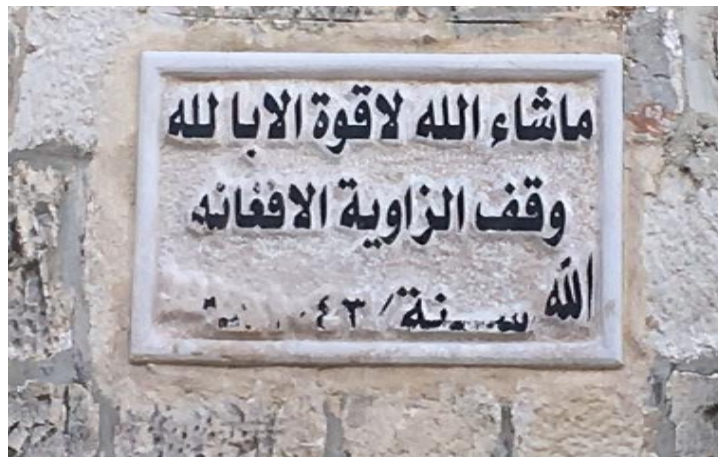 ماشاء الله لاقوة الابا لله
وقف الزاوية الافغانه
الله سنة